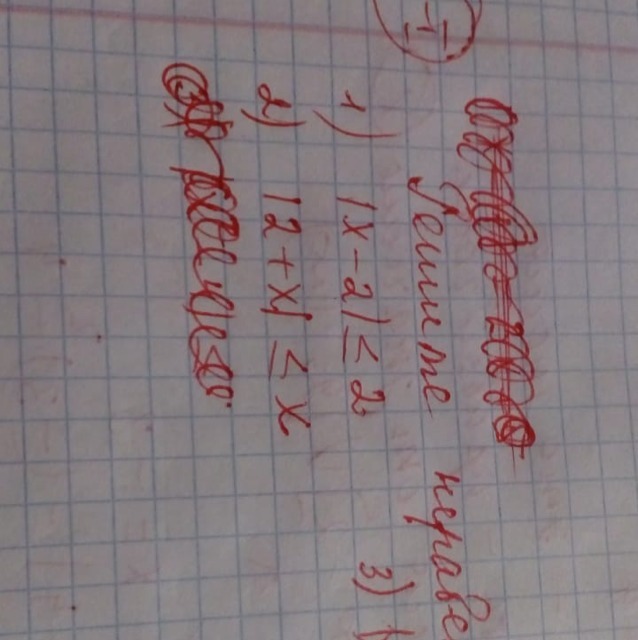 Решите нераве
1) |x-2| ≤ 2
3) |
2) |2+x| ≤ x